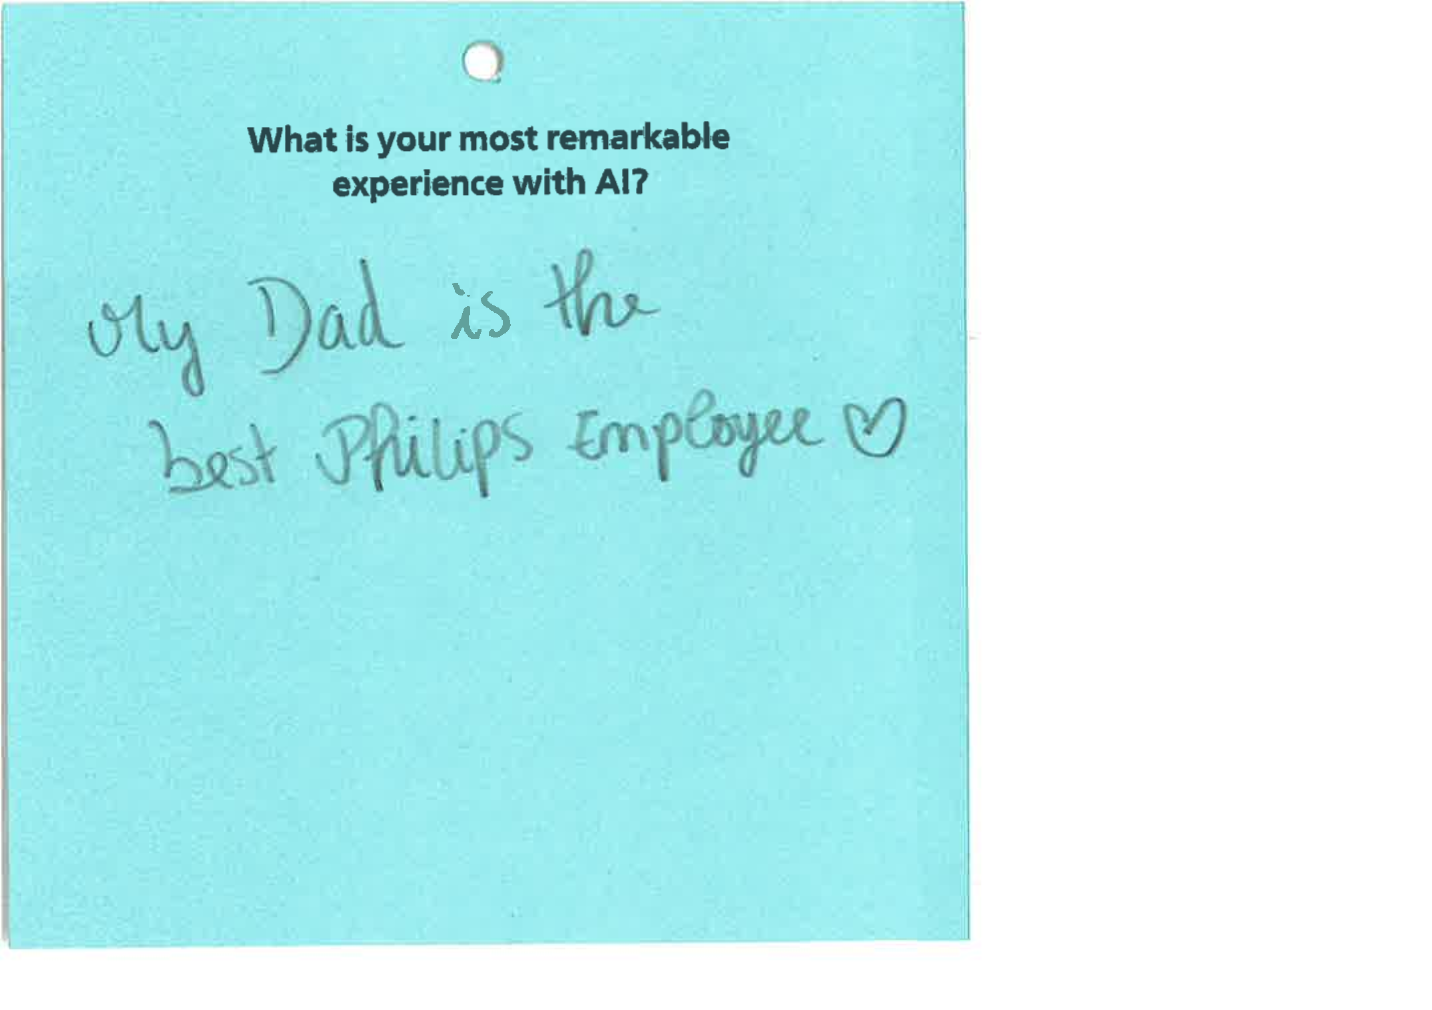 What is your most remarkable
experience with AI?
My Dad is the
best Philips Employee ♡